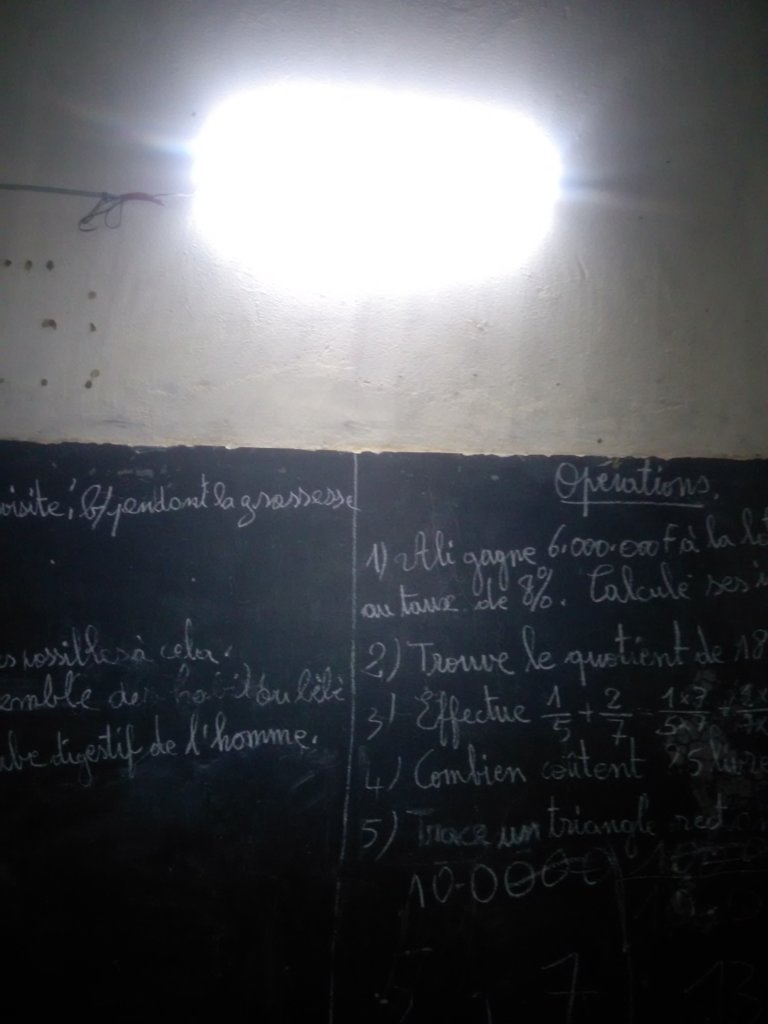 visite, b/ pendant la grossesse
possibles à cela.
du bébé
tube digestif de l'homme.
Opérations.
1) Ali gagne 6.000.000F à la
au taux de 8%. Calcule ses
2) Trouve le quotient de 18
3) Effectue 1/5 + 2/7 = 1x7/5x7 + 2x/7x
4) Combien coûtent 25 livre
5) Trace un triangle rect
10.000
7
13